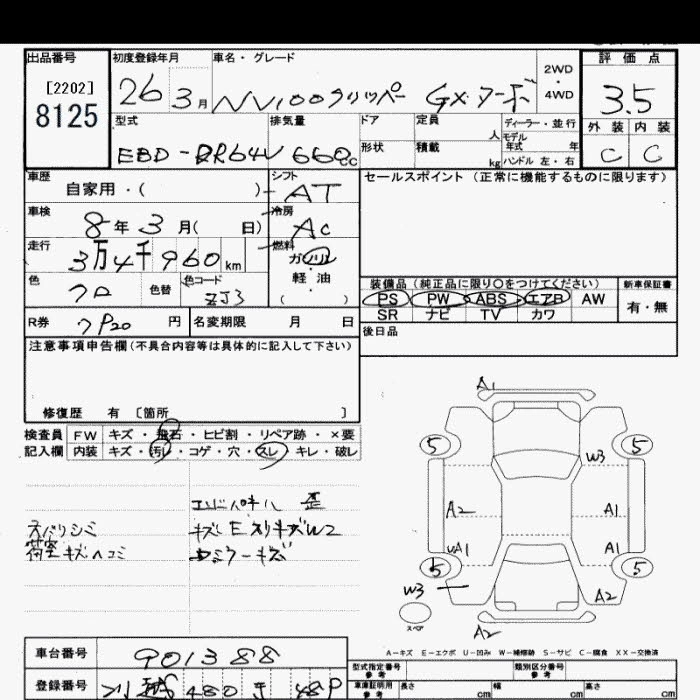 出品番号 初度登録年月 車名・グレード 2WD・4WD 評価点
[2202]
8125
26 3月 NV100クリッパー GX・ターボ 3.5
型式 排気量 ドア 定員 人 ディーラー・並行 外装 内装
モデル年式 年
EBD-DR64V 660cc 形状 積載 kg ハンドル 左・右 C C
車歴 シフト セールスポイント (正常に機能するものに限ります)
自家用・( ) AT
車検 冷房
8年3月( 日) AC
走行 燃料
3万4千960km ガソリン
軽油
( )
色 色替 色コード
クロ ZJ3
装備品 (純正品に限り○をつけてください) 新車保証書
PS PW ABS エアB AW 有・無
SR ナビ TV カワ
R券 リP20 円 名変期限 月 日 後日品
注意事項申告欄(不具合内容等は具体的に記入して下さい)
修復歴 有 [箇所 ]
検査員 FW キズ・飛石・ヒビ割・リペア跡・×要
記入欄 内装 キズ・汚レ・コゲ・穴・スレ・キレ・破レ
歪
スバリシミ キズE スリキズW2
荷室キズヘコミ ドミラーキズ
A1
5 5
W3
A2 A1
UA1 A1
5 5
W3 A2
スペア
A2
A-キズ E-エクボ U-凹み W-補修跡 S-サビ C-腐食 XX-交換済
車台番号 901388
型式指定番号 参考 類別区分番号 参考
登録番号 480
車庫証明用 参考 長さ cm 幅 cm 高さ cm